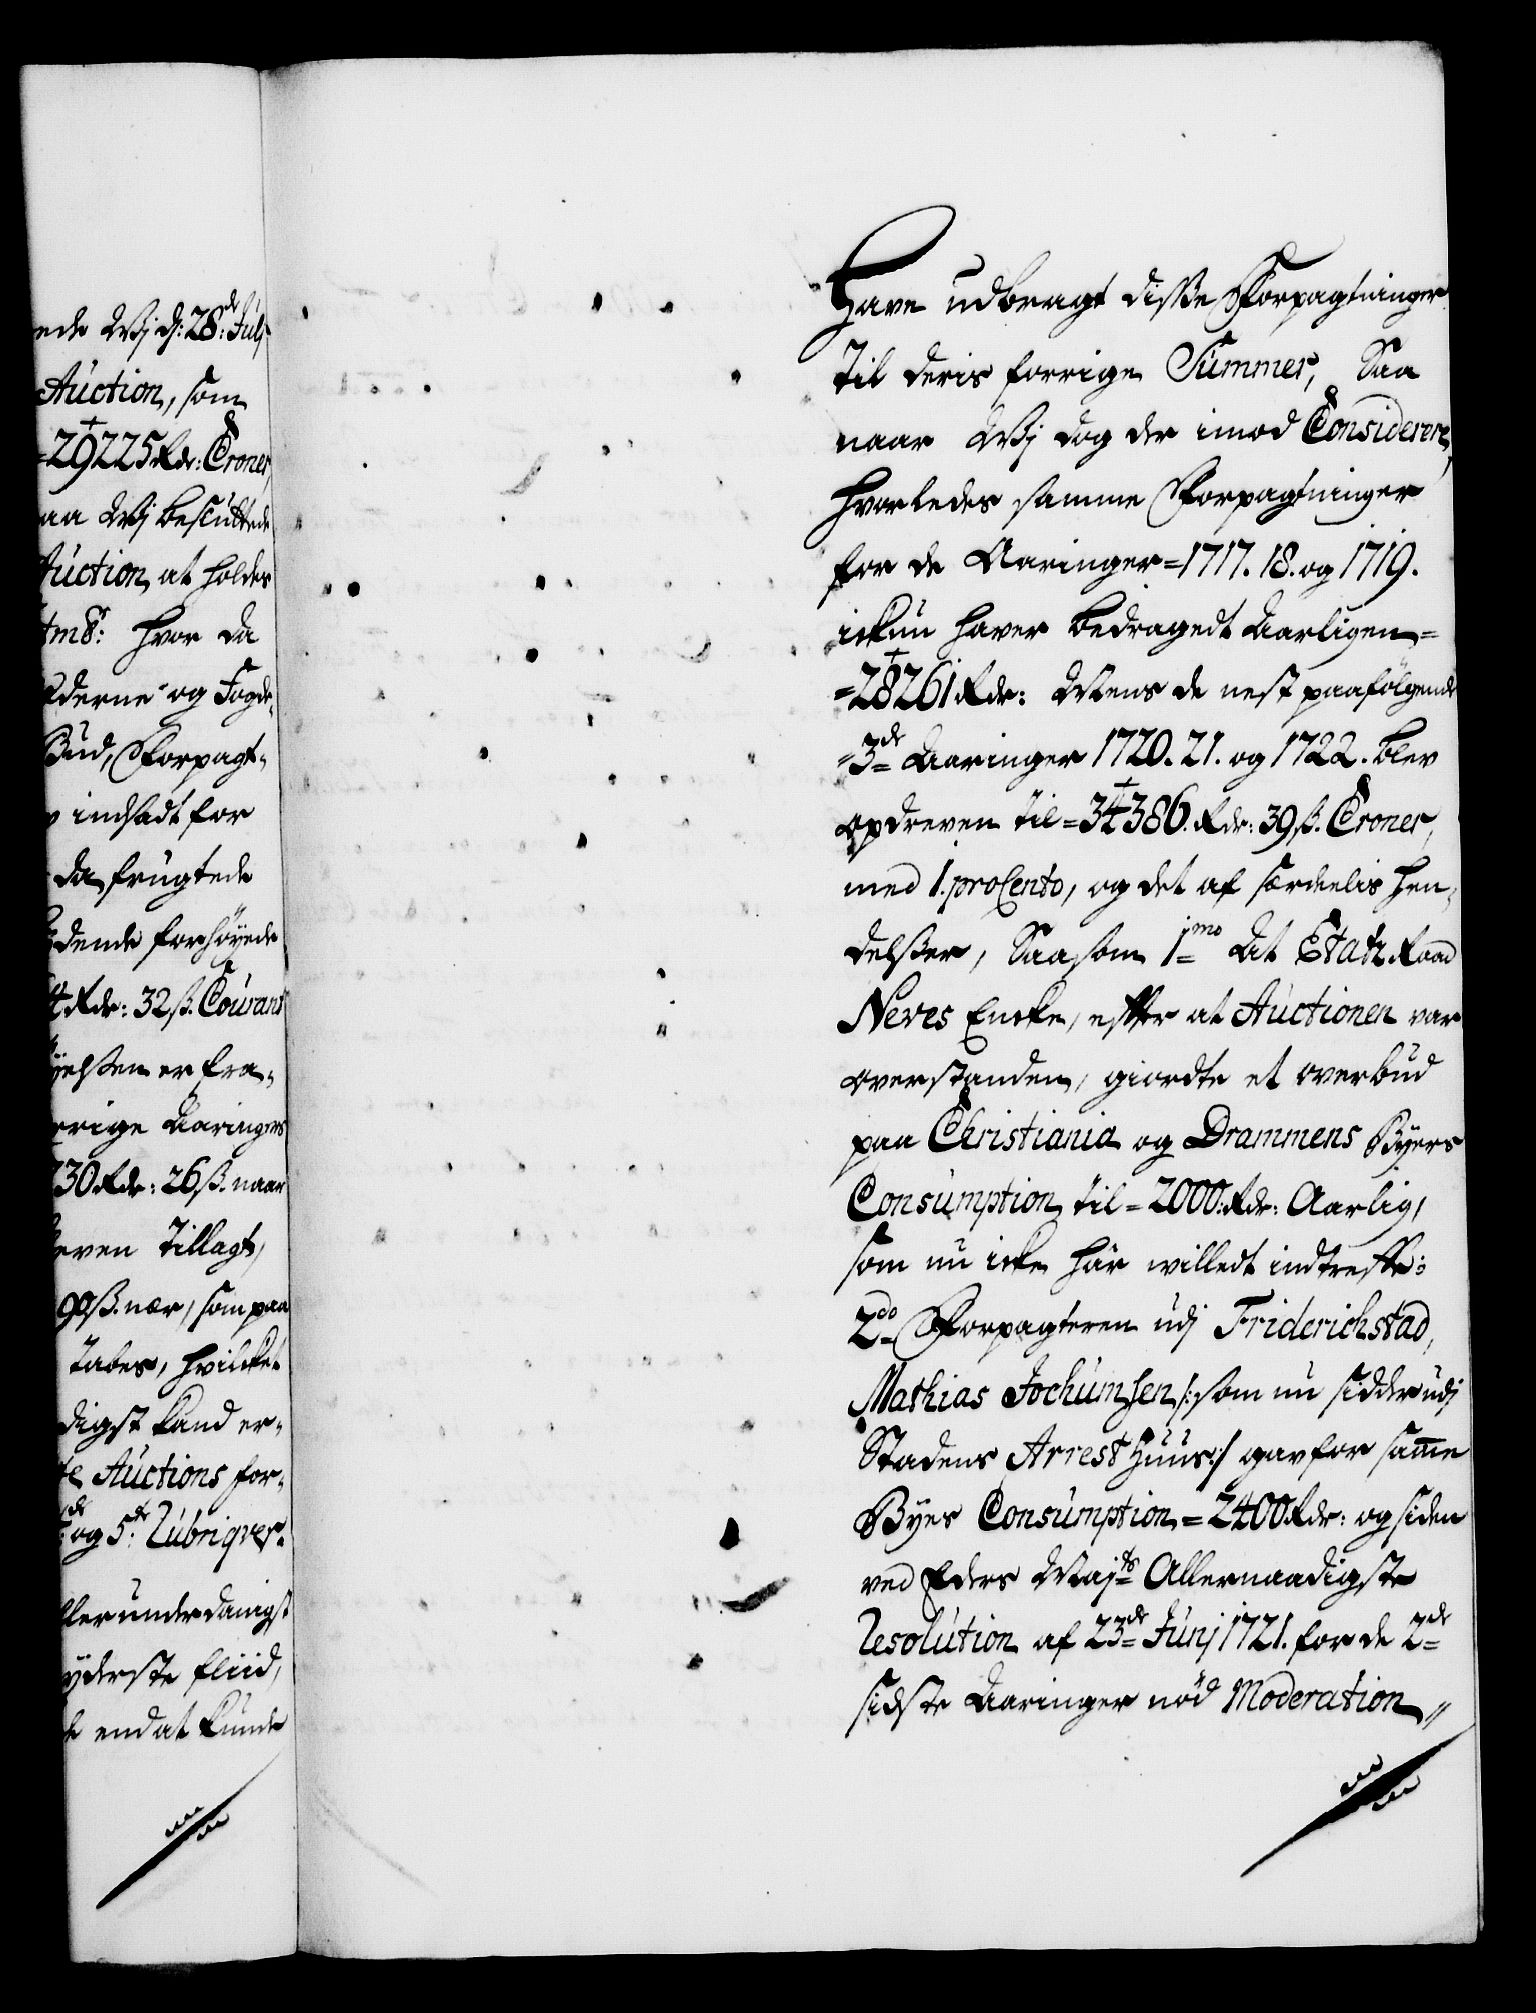 ede Wj d: 28de Julj
Auction, som
=29225 Rdr: Croner,
aa Wj besluttede
Auction, at holdes
hvor da
og Fogde-
Bud, Forpagt-
indsadt for
da frugtede
dende forhöyede
4 Rdr: 32 ß. Courant
elßen er fra-
rrige Aaringers
30 Rdr: 26 ß. naar
even tillagt,
90 ß. nær, som paa
tabes, hvilcket
digst kand er-
te Auctions for-
og 5te Rubriqver
ller underdanigst
yderste fliid,
end at kunde
Have udbragt disse Forpagtninger
til deris forrige Summer, Saa
naar Wj dog der imod Considerere,
hvorledes samme Forpagtninger
for de Aaringer =1717. 18. og 1719.
ickun haver bedragedt Aarligen =
=28261 Rdr: Mens de nest paafölgende
=3de Aaringer 1720. 21. og 1722. blev
opdreven til =34386. Rdr: 39 ß. Croner,
med 1. proCento, og det af særdeelis hen-
delßer, Saasom 1mo At Etatz Raad
Neves Encke, efter at Auctionen var
overstanden, giordte et overbud
paa Christiania og Drammens Byers
Consumption til = 2000: Rdr: Aarlig,
som nu icke har villedt indtreffe:
2do Forpagteren udj Friderichstad,
Mathias Jochumsen /: som nu sidder udj
Stadens Arrest Huus :/ gav for samme
Byes Consumption = 2400 Rdr: og siden
ved Eders Majts Allernaadigste
Resolution af 23de Junj 1721. for de 2de
sidste Aaringer nöd Moderation //